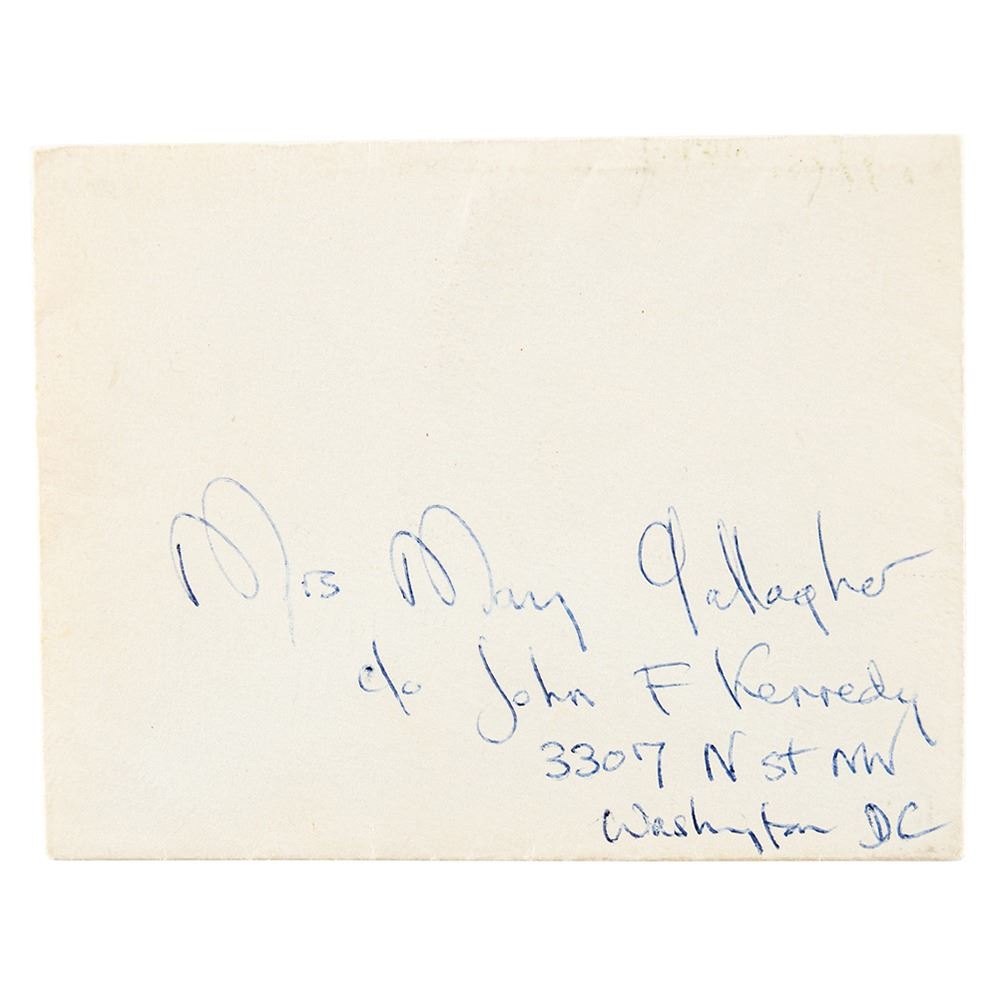 Mrs Mary Gallagher
c/o John F Kennedy
3307 N St NW
Washington DC